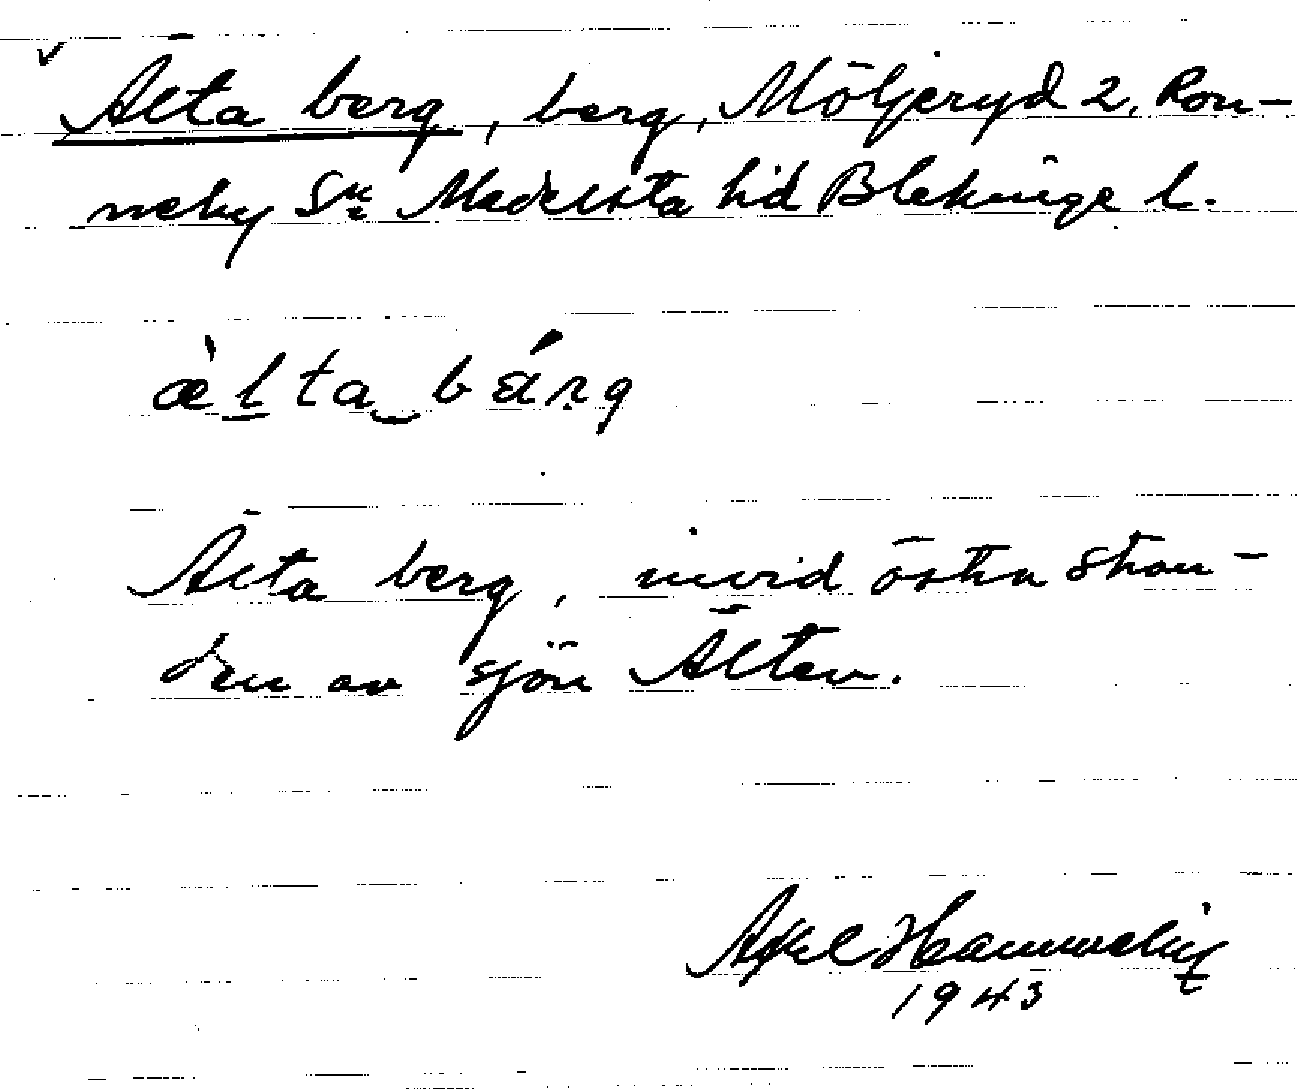 Älta berg, berg, Möljeryd 2, Ron-
neby Sn: Medelsta hd Blekinge l.
æ̀lta bárg
Älta berg, invid östra stran-
den av sjön Älten.
Axel
1943